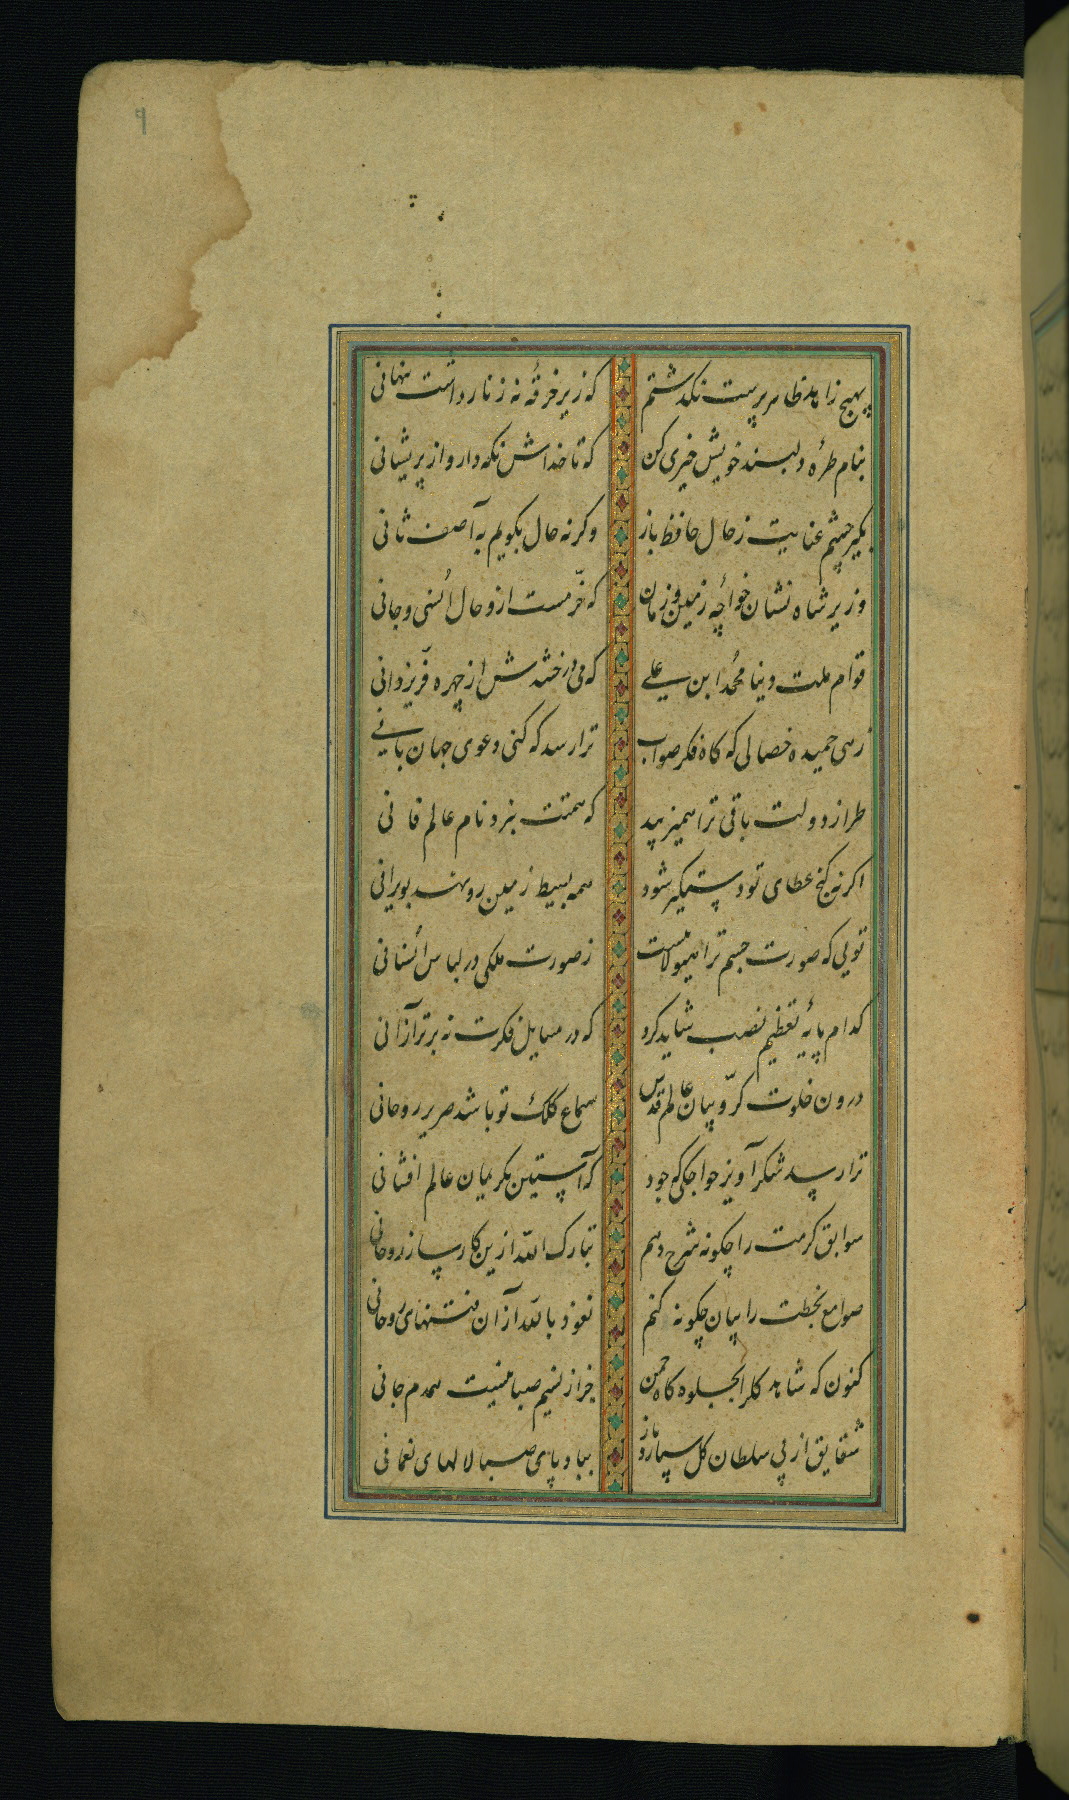 ۹
بهیچ زاهد ظاهر پرست نکذشتم که زیر خرقه نه زنار داشت پنهانی
بنام طرهٔ دلبند خویش خیری کن که تا خداش نکه دارد از پریشانی
مکیر چشم عنایت ز حال حافظ باز وکرنه حال بکویم به آصف ثانی
وزیر شاه نشان خواجهٔ زمین و زمان که خرّمست ازو حال انسی و جانی
قوام ملت و دنیا محمد ابن علی که می درخشدش از چهره فر یزدانی
زهی حمیده خصالی که کاه فکر صواب ترا رسد که کنی دعوی جهان بانی
طراز دولت باقی ترا همیزیبد که همتت نبرد نام عالم فانی
اکر نه کنج عطای تو دستکیر شود همه بسیط زمین رو نهد بویرانی
تویی که صورت جسم ترا هیولا نیست ز صورت ملکی در لباس انسانی
کدام پایهٔ تعظیم نصب شاید کرد که در مسایل فکرت نه برتر از آنی
درون خلوت کرّوبیان عالم قدس سماع کلک تو باشد صریر روحانی
ترا رسد شکر آویز خواجکی که جود که آستین بکریمان عالم افشانی
سوابق کرمت را چکونه شرح دهم تبارک الله از این کارساز روحانی
صوامع سخطت را بیان چکونه کنم نعوذ بالله از آن فتنهای روحانی
کنون که شاهد کل را بجلوه کاه چمن جز از نسیم صبا نیست همدم جانی
شقایق از پی سلطان کل سپارد باز بباد پای صبا لالهای نعمانی